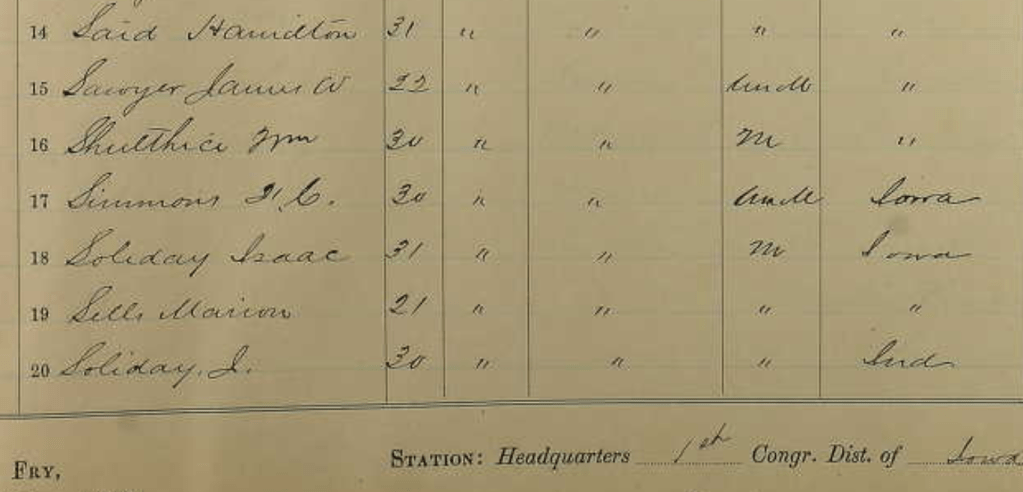 14 Said Hamilton 31 " " " "
15 Sawyer James W 22 " " UnM "
16 Shulthice Wm 30 " " M "
17 Simmons H. C. 30 " " UnM Iowa
18 Soliday Isaac 31 " " M Iowa
19 Sells Marion 21 " " " "
20 Soliday. J. 30 " " " Ind
STATION: Headquarters 1st Congr. Dist. of Iowa
FRY,